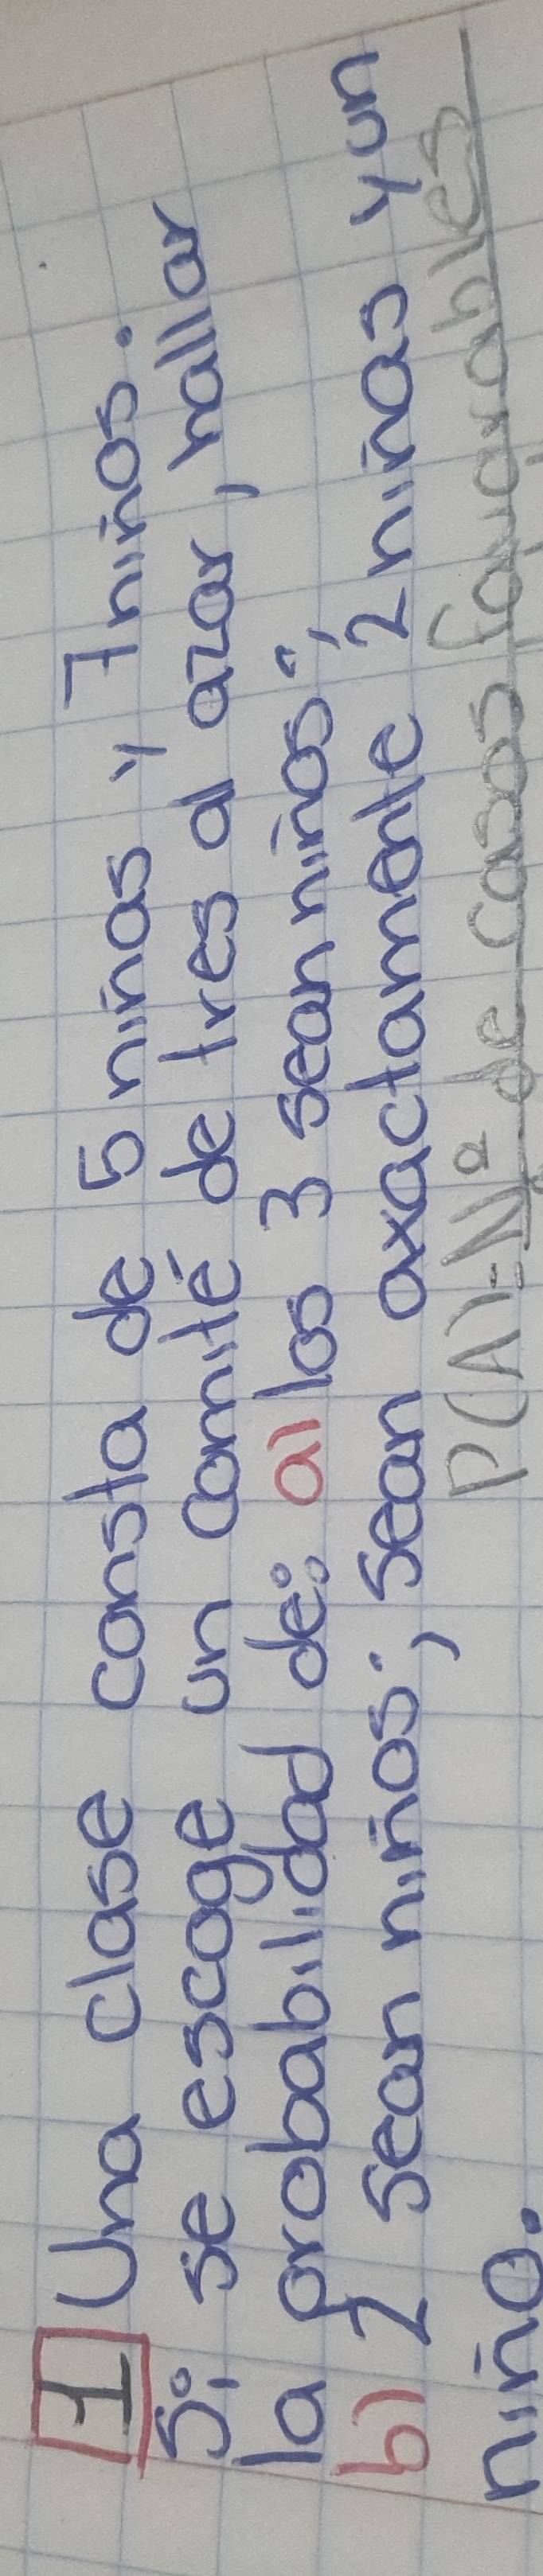 1 Una clase consta de 5 niñas y 7 niños.
Si se escoge un comité de tres al azar, hallar
la probabilidad de: a) los 3 sean niños;
b) 2 sean niños; sean axactamente 2 niñas y un
niño. P(A)=Nº de casos favorables